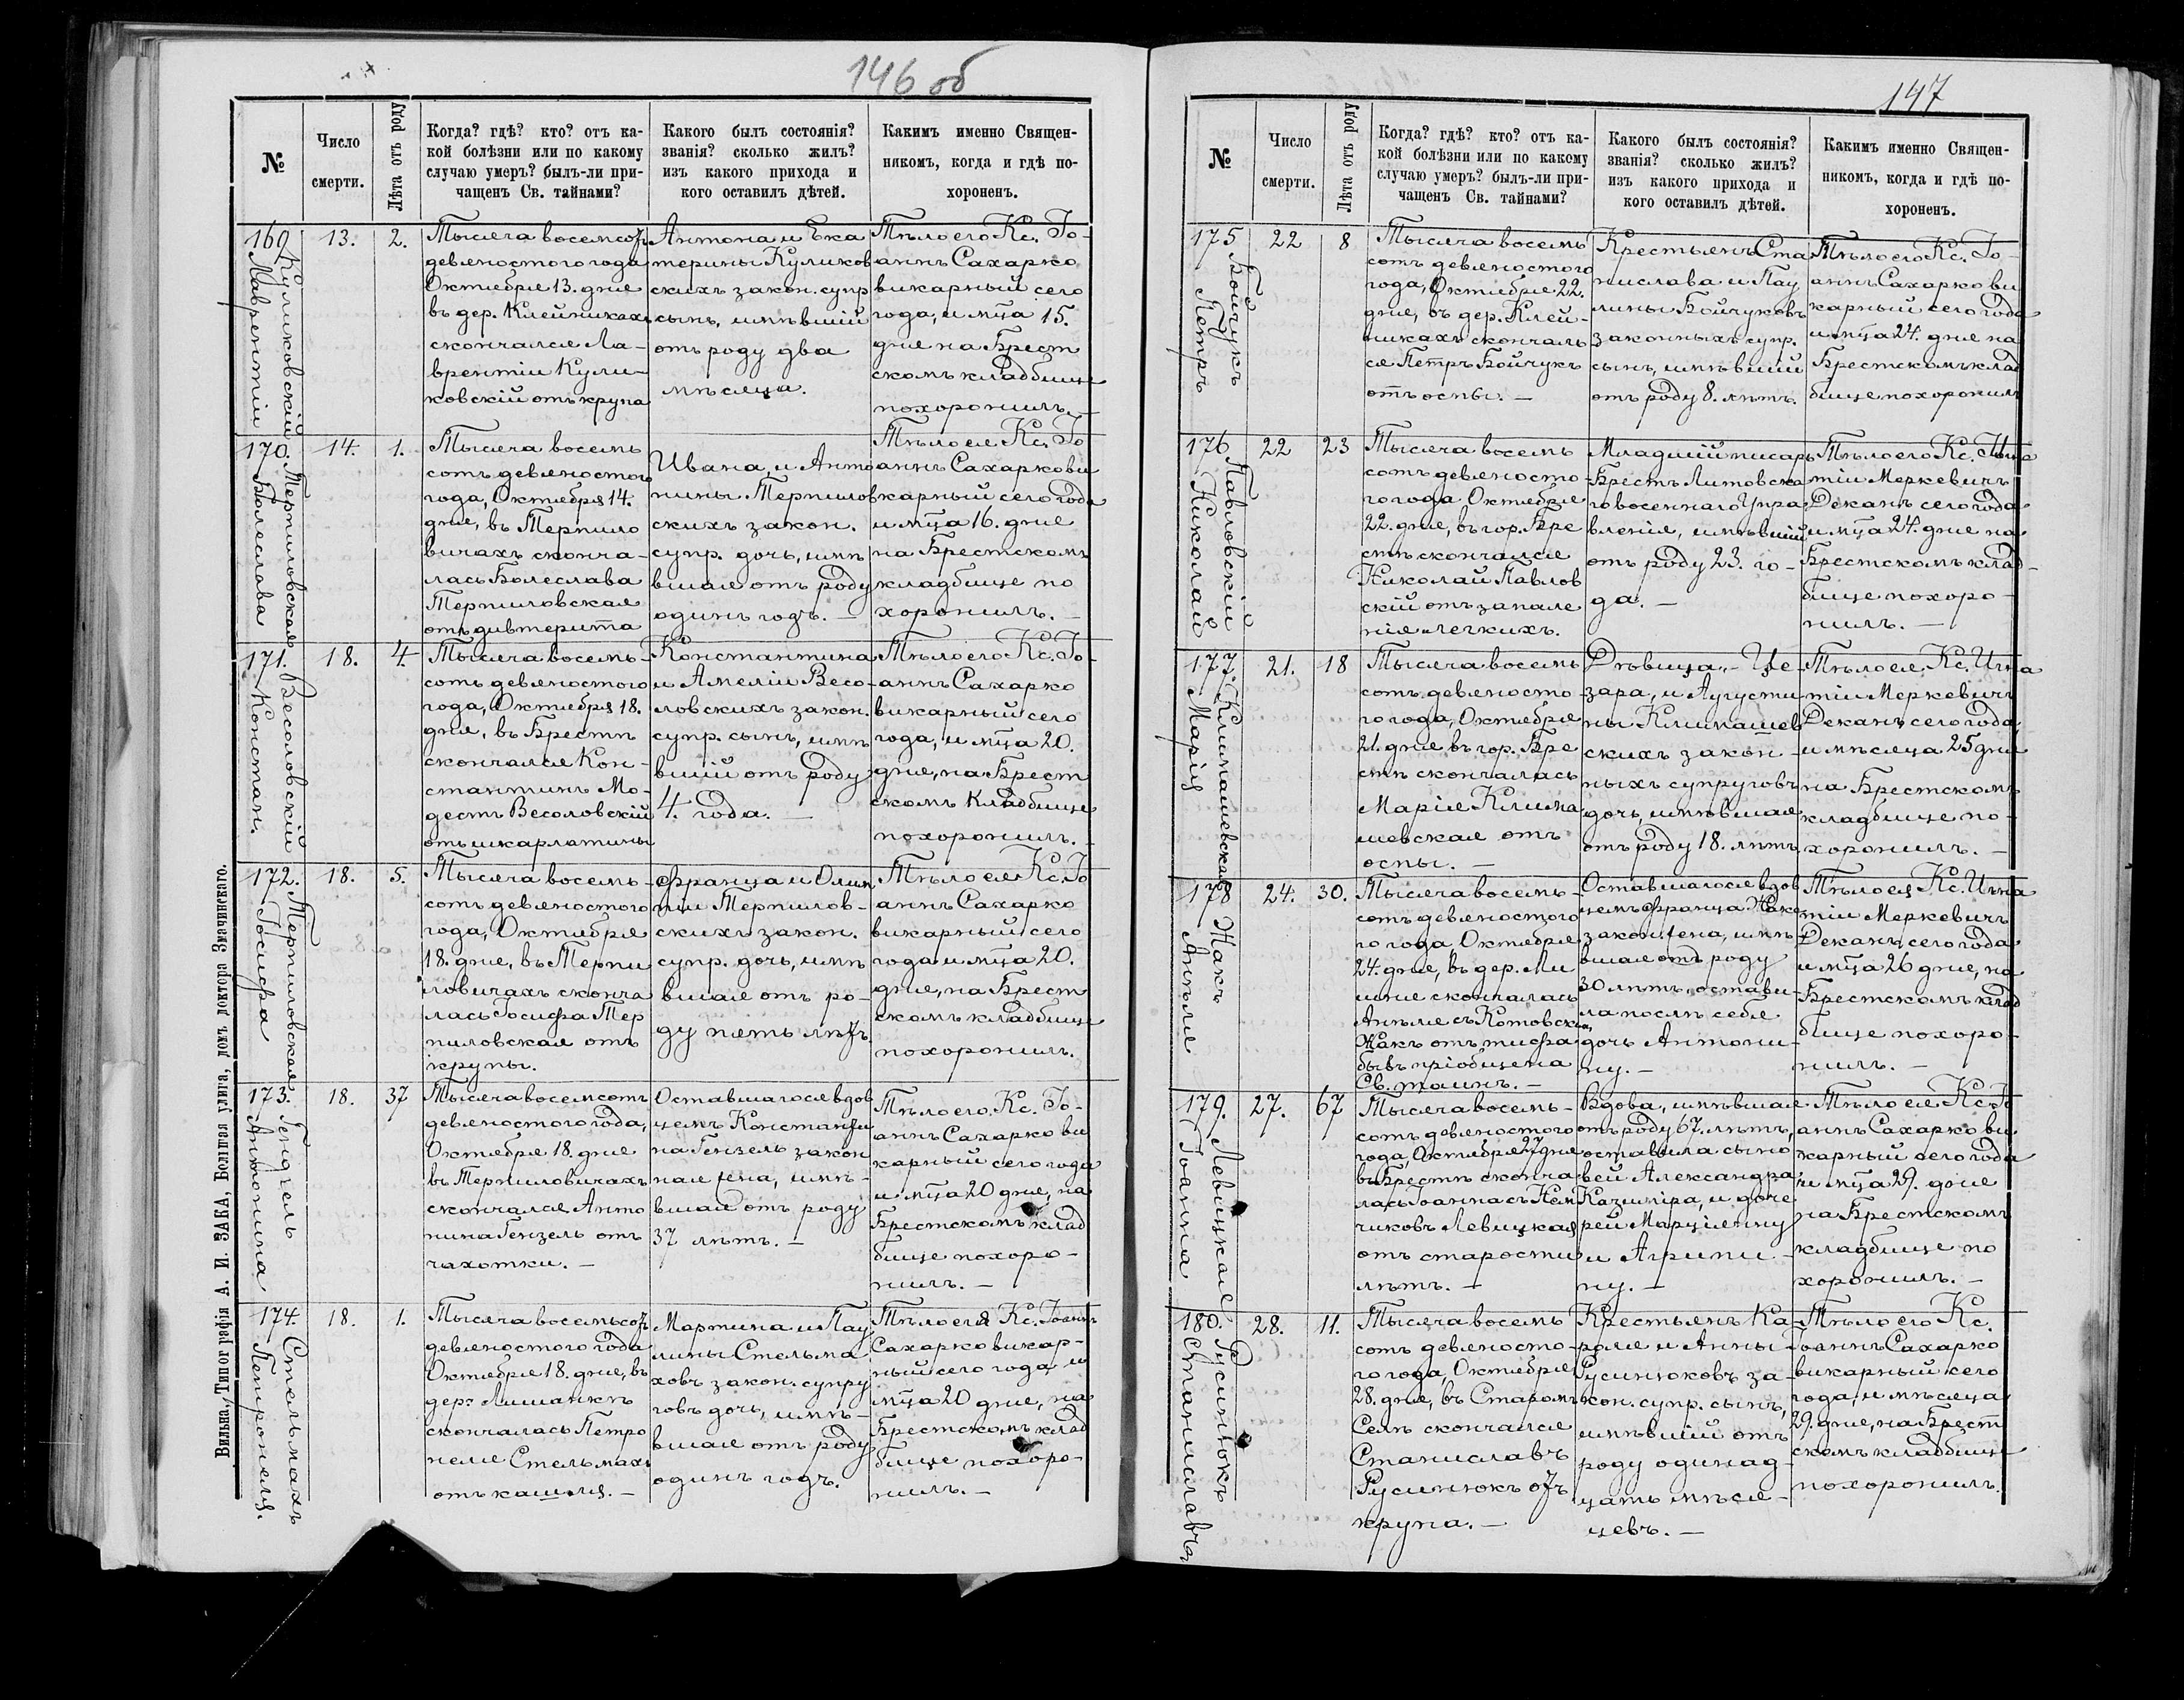 146 об
№
Число
смерти.
Лѣта отъ роду
Когда? гдѣ? кто? отъ ка-
кой болѣзни или по какому
случаю умеръ? былъ-ли при-
чащенъ Св. тайнами?
Какого былъ состоянія?
званія? сколько жилъ?
изъ какого прихода и
кого оставилъ дѣтей.
Какимъ именно Священ-
никомъ, когда и гдѣ по-
хороненъ.
169
Куликовскій
Лаврентіи
13.
2.
Тысяча восемсотъ
девяностого года
Октября 13. дня
въ дер. Клейникахъ
скончался Ла-
врентіи Кули-
ковскій отъ крупа
Антона и Ека
терины Куликов
скихъ закон. супр
сынъ, имѣвшій
отъ роду два
мѣсяца.
Тѣло его Кс. Іо-
аннъ Сахарко
викарный сего
года, и мца 15.
дня на Брест
скомъ кладбище
похоронилъ. —
170.
Терпиловская
Болеслава
14.
1.
Тысяча восемь
сотъ девяностого
года, Октября 14.
дня, въ Терпило
вичахъ сконча-
лась Болеслава
Терпиловская
отъ дивтерита
Ивана, и Анто
нины Терпилов
скихъ закон.
супр. дочь, имѣ
вшая отъ роду
одинъ годъ. —
Тѣло ея Кс. Іо
аннъ Сахарко ви
карный сего года
и мца 16. дня
на Брестскомъ
кладбище по
хоронилъ. —
171.
Весоловскій
Констант.
18.
4.
Тысяча восемь-
сотъ девяностого
года, Октября 18.
дня, въ Брестѣ
скончался Кон-
стантинъ Мо-
дестъ Весоловскій
отъ шкарлатины
Константина
и Амеліи Весо-
ловскихъ закон.
супр. сынъ, имѣ
вшій отъ роду
4. года. —
Тѣло его Кс. Іо-
аннъ Сахарко
викарный сего
года, и мца 20.
дня, на Брест
скомъ кладбище
похоронилъ. —
172.
Терпиловская
Іосифа
18.
5.
Тысяча восемь-
сотъ девяностого
года, Октября
18. дня, въ Терпи
ловичахъ сконча
лась Іосифа Тер
пиловская отъ
крупы.
Франца и Олим
піи Терпилов-
скихъ закон.
супр. дочь, имѣ
вшая отъ ро-
ду пять лѣтъ.
Тѣло ея Кс. Іо
аннъ Сахарко
викарный сего
года и мца 20.
дня, на Брест
скомъ кладбище
похоронилъ.
173.
Гендзель
Антонина
18.
37
Тысяча восемсотъ
девяностого года,
Октября 18. дня
въ Терпиловичахъ
скончался Анто
нина Гензель отъ
чахотки. —
Оставшагося вдов
цемъ Константи
на Гензель закон
ная жена, имѣ-
вшая отъ роду
37 лѣтъ. —
Тѣло его. Кс. Іо-
аннъ Сахарко ви
карный сего года
и мца 20 дня, на
Брестскомъ клад
бище похоро-
нилъ. —
174.
Стельмахъ
Петронеля.
18.
1.
Тысяча восемьсотъ
девяностого года
Октября 18. дня, въ
дер. Лишанкѣ
скончалась Петро
неля Стельмахъ
отъ кашля. —
Мартина и Пау
лины Стельма
ховъ закон. супру
говъ дочь, имѣ-
вшая отъ роду
одинъ годъ.
Тѣло ея Кс. Іоаннъ
Сахарко викар-
ный сего года, и
мца 20 дня, на
Брестскомъ клад
бище похоро-
нилъ. —
Вильна, Типографія А. И. ЗАКА, Большая улица, домъ доктора Значинскаго.
147
№
Число
смерти.
Лѣта отъ роду
Когда? гдѣ? кто? отъ ка-
кой болѣзни или по какому
случаю умеръ? былъ-ли при-
чащенъ Св. тайнами?
Какого былъ состоянія?
званія? сколько жилъ?
изъ какого прихода и
кого оставилъ дѣтей.
Какимъ именно Священ-
никомъ, когда и гдѣ по-
хороненъ.
175
Бойчукъ
Петръ
22
8
Тысяча восемь
сотъ девяностого
года, Октября 22.
дня, въ дер. Клей-
никахъ скончаль
ся Петръ Бойчукъ
отъ оспы. —
Крестьянъ Ста
нислава и Пау
лины Бойчуковъ
законныхъ супр.
сынъ, имѣвшій
отъ роду 8. лѣтъ.
Тѣло его Кс. Іо-
аннъ Сахарко ви
карный сего года
и мца 24. дня на
Брестскомъ клад
бище похоронилъ
176
Павловскій
Николай
22
23
Тысяча восемь
сотъ девяносто-
го года Октября
22. дня, въ гор. Бре
стѣ скончался
Николай Павлов
скій отъ запале
нія легкихъ.
Младшій писарь
Брестъ Литовска
го военнаго Упра
вленія, имѣвшій
отъ роду 23. го-
да. —
Тѣло его Кс. Игна
тіи Меркевичъ
Деканъ сего года
и мца 24. дня на
Брестскомъ клад-
бище похоро-
нилъ. —
177.
Климашевская
Марія
21.
18
Тысяча восемь
сотъ девяносто-
го года, Октября
21. дня въ гор. Бре
стѣ скончалась
Марія Клима
шевская отъ
оспы. —
Дѣвица, — Це-
зара, и Аугусти
ны Климашев
скихъ закон-
ныхъ супруговъ
дочь, имѣвшая
отъ роду 18. лѣтъ
Тѣло ея Кс. Игна
тіи Меркевичъ
Деканъ сего года
и мѣсяца 25 дня
на Брестскомъ
кладбище по-
хоронилъ. —
178
Жакъ
Анѣля
24.
30.
Тысяча восемь-
сотъ девяностого
го года, Октября
24. дня, въ дер. Ми
шне скончалась
Анѣля съ Котовскихъ
Жакъ отъ тифа
бывъ пріобщена
Св. таинъ. —
Оставшагося вдов
цемъ Франца Жака
закон. жена, имѣ-
вшая отъ роду
30 лѣтъ, остави-
ла послѣ себя
дочь Антони-
ну. —
Тѣло ея Кс. Игна
тіи Меркевичъ
Деканъ, сего года
и мца 26 дня, на
Брестскомъ клад
бище похоро-
нилъ. —
179.
Левицкая
Іоанна
27.
67
Тысяча восемь-
сотъ девяностого
года, Октября 27 дня
въ Брестѣ сконча
лась Іоанна съ Нем
чиковъ Левицкая
отъ старости
лѣтъ. —
Вдова, имѣвшая
отъ роду 67. лѣтъ,
оставила сыно
вей Александра
Казиміра, и доче
рей Марціянну
и Агрипи-
ну. —
Тѣло ея Кс. Іо
аннъ Сахарко ви
карный сего года
и мца 29. дня
на Брестскомъ
кладбище по
хоронилъ. —
180.
Русинюкъ
Станиславъ
28.
11.
Тысяча восемь
сотъ девяносто-
го года, Октября
28. дня, въ Старомъ
Селѣ скончался
Станиславъ
Русинюкъ отъ
крупа. —
Крестьянъ Ка-
роля и Анны
Русинюковъ за-
кон. супр. сынъ,
имѣвшій отъ
роду одинад-
цать мѣся-
цевъ. —
Тѣло его Кс.
Іоаннъ Сахарко
викарный сего
года, и мѣсяца
29. дня, на Брест
скомъ кладбище
похоронилъ.